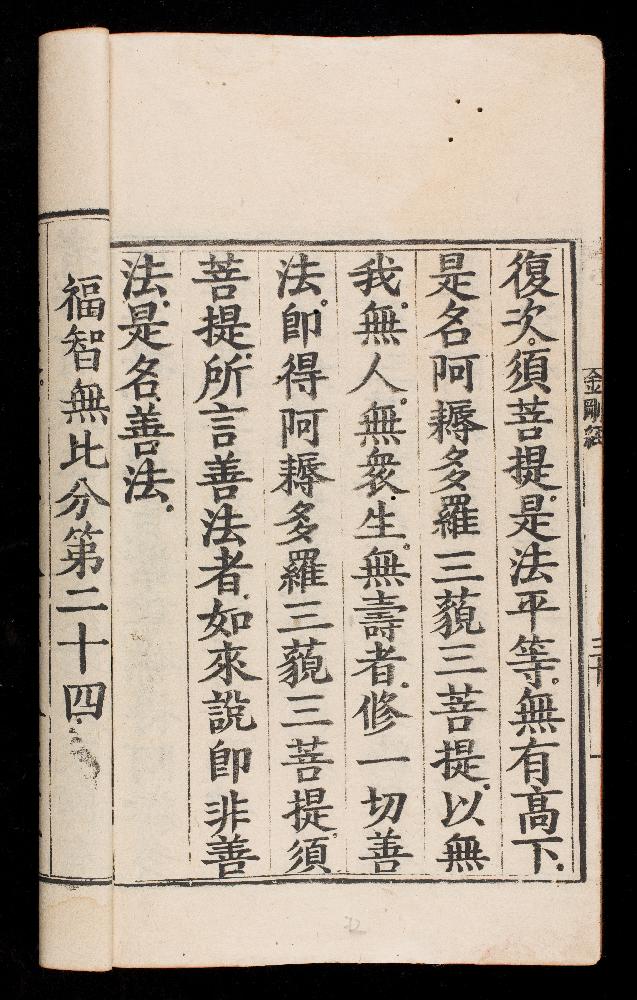 金剛經
三十
復次。須菩提。是法平等。無有高下。
是名阿耨多羅三藐三菩提。以無
我。無人。無衆生。無壽者。修一切善
法。即得阿耨多羅三藐三菩提。須
菩提。所言善法者。如來說即非善
法。是名善法。
福智無比分第二十四